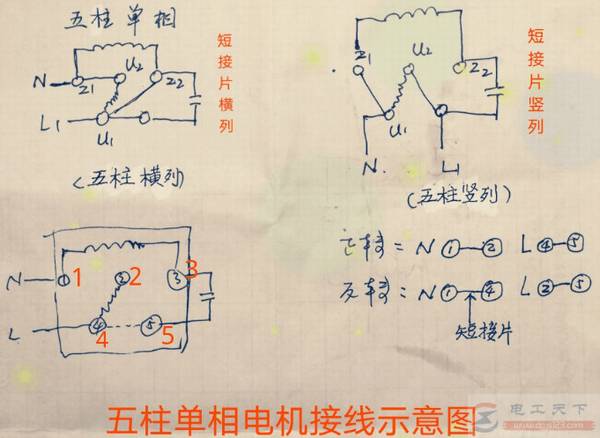 五柱单相
短接片横列
N
Z1
U2
Z2
L1
U1
(五柱横列)
短接片竖列
Z1
U2
Z2
U1
N.
L1
(五柱竖列)
N
1
2
②
③
3
L
④
4
⑤
5
正转= N ①—② L ④—⑤
反转= N ①—④ L ②—⑤
短接片
五柱单相电机接线示意图
电工天下